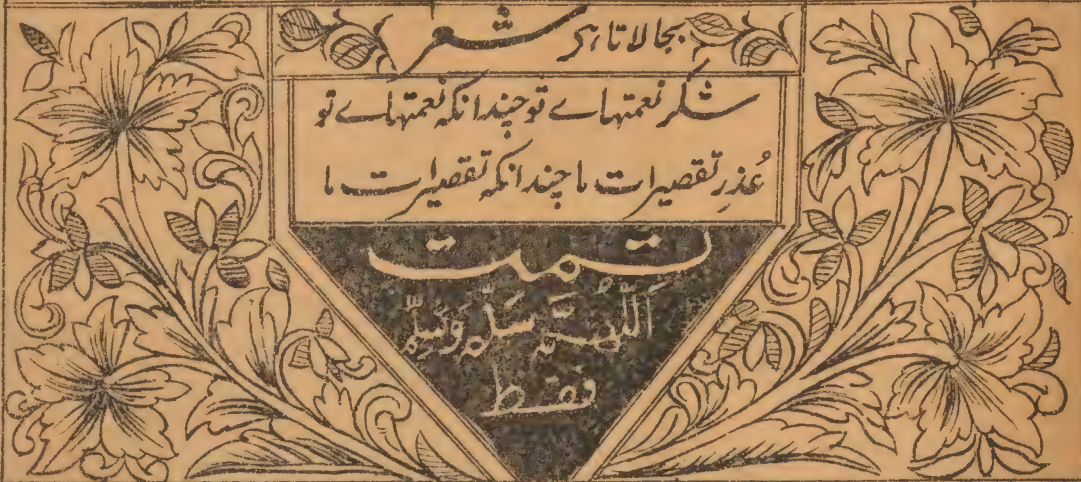 بجا لاتا ہے شعر
شکر نعمتہاے تو چندانکہ نعمتہاے تو
عُذرِ تقصیرات ما چندانکہ تقصیرات ما
تمت
اَللّٰہُمَّ سَلِّہ وَسَلِّم
فقط